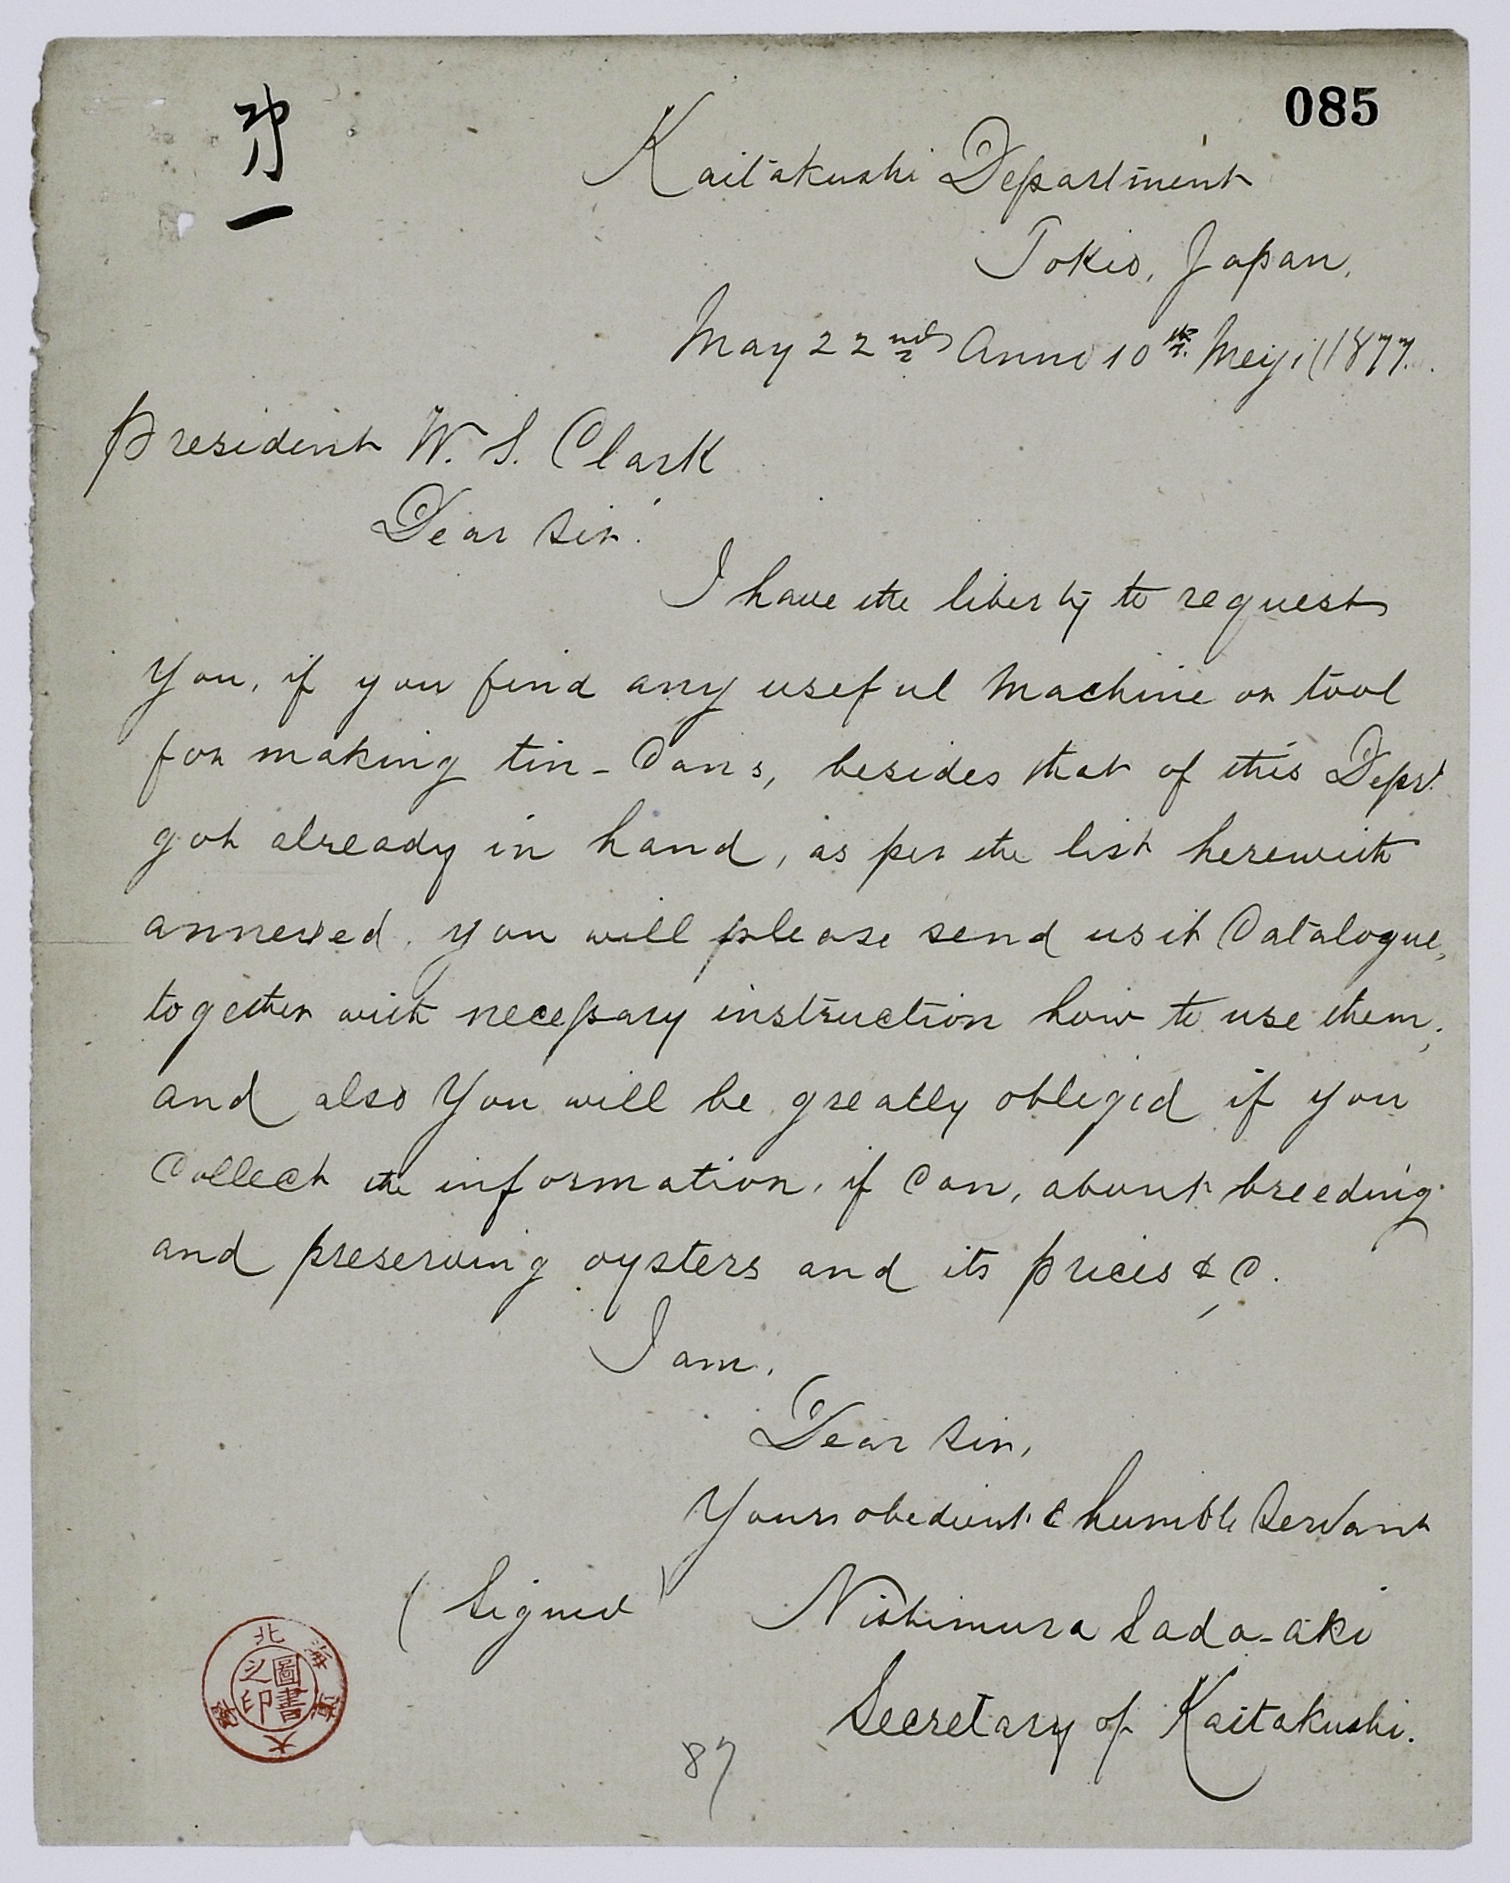 085
第一
Kaitakushi Department
Tokio, Japan,
May 22nd Anno 10th Meiji (1877.
President W. S. Clark
Dear Sir!
I have the liberty to request
you, if you find any useful machine or tool
for making tin-Cans, besides that of this Dept.
got already in hand, as per the list herewith
annexed, you will please send us it Catalogue,
together with necessary instruction how to use them,
and also You will be greatly obliged if you
Collect the information, if Can, about breeding
and preserving oysters and its prices &C.
I am,
Dear Sir,
Your obedient & humble Servant
(Signed) Nishimura Sada-aki
Secretary of Kaitakushi.
87
北海道大學
圖書之印